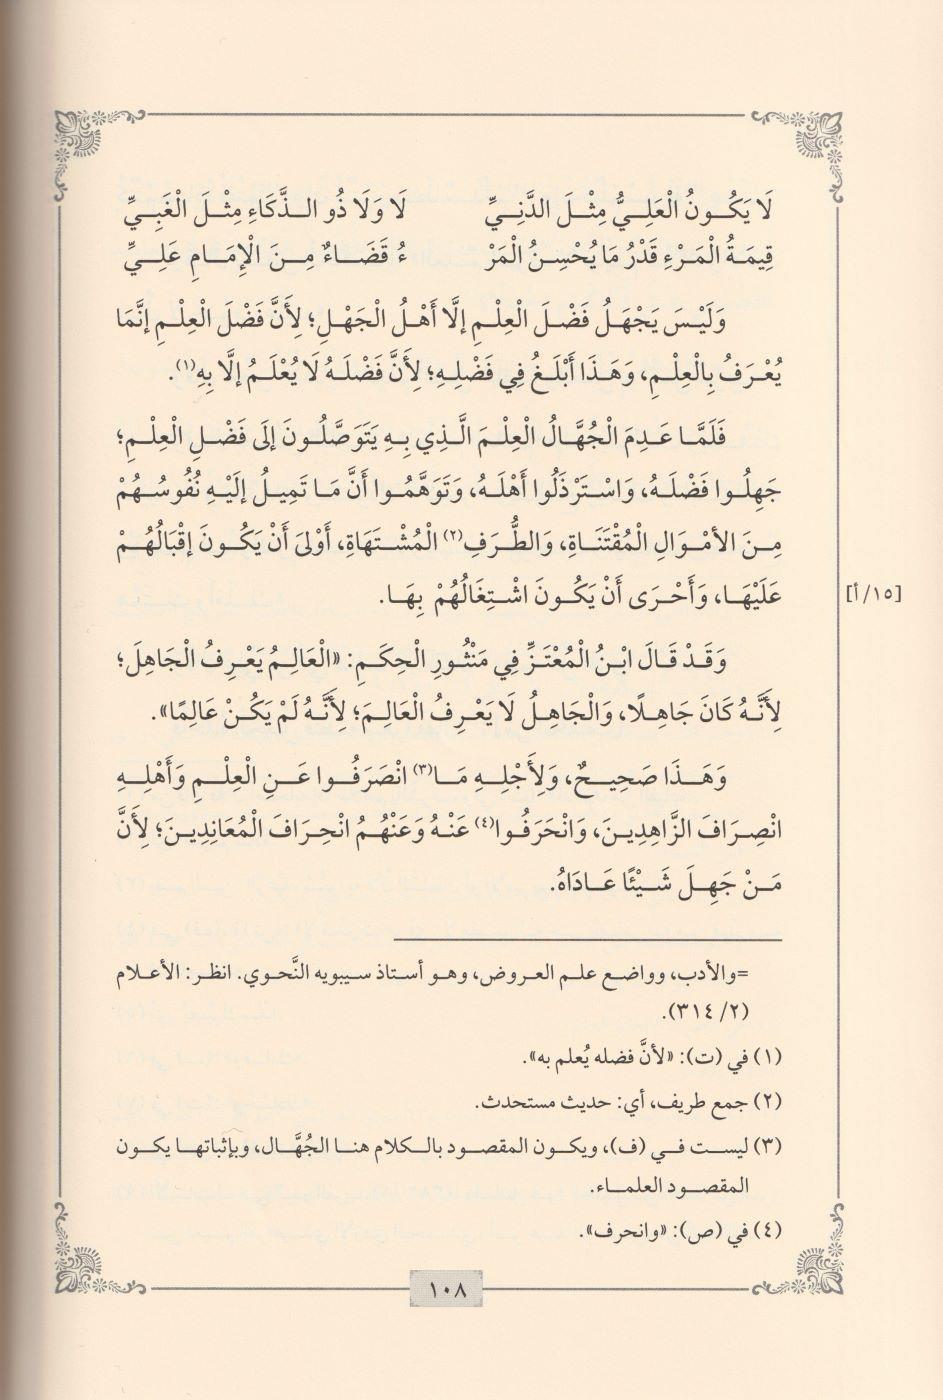 لَا يَكُونُ الْعَلِيُّ مِثْلَ الدَّنِيِّ لَا وَلَا ذُو الذَّكَاءِ مِثْلَ الْغَبِيِّ
قِيمَةُ الْمَرْءِ قَدْرُ مَا يُحْسِنُ الْمَرْ ءُ قَضَاءٌ مِنَ الْإِمَامِ عَلِيِّ
وَلَيْسَ يَجْهَلُ فَضْلَ الْعِلْمِ إلَّا أَهْلُ الْجَهْلِ؛ لِأَنَّ فَضْلَ الْعِلْمِ إنَّمَا
يُعْرَفُ بِالْعِلْمِ، وَهَذَا أَبْلَغُ فِي فَضْلِهِ؛ لِأَنَّ فَضْلَهُ لَا يُعْلَمُ إلَّا بِهِ(١).
فَلَمَّا عَدِمَ الْجُهَّالُ الْعِلْمَ الَّذِي بِهِ يَتَوَصَّلُونَ إلَى فَضْلِ الْعِلْمِ؛
جَهِلُوا فَضْلَهُ، وَاسْتَرْذَلُوا أَهْلَهُ، وَتَوَهَّمُوا أَنَّ مَا تَمِيلُ إلَيْهِ نُفُوسُهُمْ
مِنَ الأمْوَالِ الْمُقْتَنَاةِ، وَالطُّرَفِ(٢) الْمُشْتَهَاةِ، أَوْلَى أَنْ يَكُونَ إقْبَالُهُمْ
عَلَيْهَا، وَأَحْرَى أَنْ يَكُونَ اشْتِغَالُهُمْ بِهَا.
[١٥/أ]
وَقَدْ قَالَ ابْنُ الْمُعْتَزِّ فِي مَنْثُورِ الْحِكَمِ: «الْعَالِمُ يَعْرِفُ الْجَاهِلَ؛
لِأَنَّهُ كَانَ جَاهِلًا، وَالْجَاهِلُ لَا يَعْرِفُ الْعَالِمَ؛ لِأَنَّهُ لَمْ يَكُنْ عَالِمًا».
وَهَذَا صَحِيحٌ، وَلِأَجْلِهِ مَا(٣) انْصَرَفُوا عَنِ الْعِلْمِ وَأَهْلِهِ
انْصِرَافَ الزَّاهِدِينَ، وَانْحَرَفُوا(٤) عَنْهُ وَعَنْهُمُ انْحِرَافَ الْمُعَانِدِينَ؛ لِأَنَّ
مَنْ جَهِلَ شَيْئًا عَادَاهُ.
=والأدب، وواضع علم العروض، وهو أستاذ سيبويه النَّحوي. انظر: الأعلام
(٢/ ٣١٤).
(١) في (ت): «لأنَّ فضله يُعلم به».
(٢) جمع طريف، أي: حديث مستحدث.
(٣) ليست في (ف)، ويكون المقصود بالكلام هنا الجُهَّال، وبإثباتها يكون
المقصود العلماء.
(٤) في (ص): «وانحرف».
١٠٨